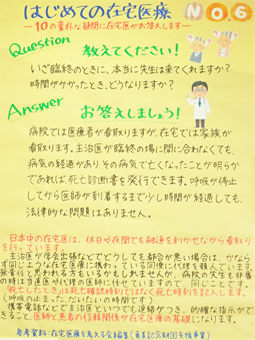 はじめての在宅医療 NO.6
―10の素朴な疑問に在宅医がお答えします―
Question 教えてください!
いざ臨終のときに、本当に先生は来てくれますか?
時間がかかったとき、どうなりますか?
Answer お答えしましょう!
病院では医療者が看取りますが、在宅では家族が
看取ります。主治医が臨終の場に間に合わなくても、
病気の経過があり、その病気で亡くなったことが明らか
であれば、死亡診断書を発行できます。呼吸が停止
してから医師が到着するまで少し時間が経過しても、
法律的な問題はありません。
日本中の在宅医は、休日や夜間でも融通を利かせながら看取り
を行っています。
主治医が学会出張などでどうしても都合が悪い場合は、かなら
ず同じような在宅医療に携わっている同僚に代理を頼んでいます。
無責任と思われる方もいるかもしれませんが、病院の先生も非番
の時は当直医や代理の医師に任せていますので、同じことです。
「死亡したとき」は死亡確認時刻ではなく死亡時刻を記入します。
(呼吸の止まった、だいたいの時間です)
携帯電話などで主治医のありでも連絡がつき、的確な指示がで
きること、医師や患者の信頼関係が在宅医療の基礎になります。
参考資料:在宅医療を考える会編集